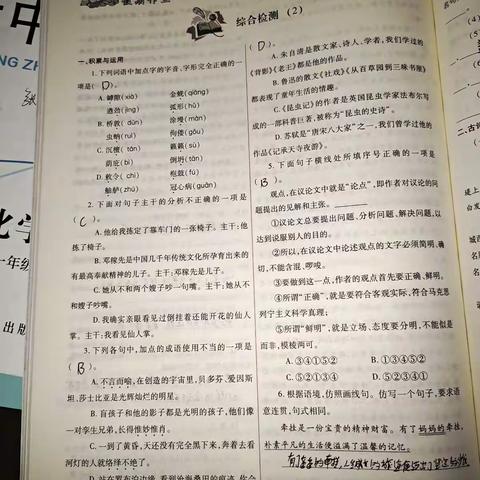 综合检测（2）
一、积累与运用
1. 下列词语中加点字的字音、字形完全正确的一
项是（D）。
A. 罅隙(xià) 金蜣(qiāng)
遒劲(jìng) 弧形(hú)
虫蚋(ruì) 佝偻(gōu)
C. 沉檀(tán) 簌簌(sù)
荫庇(bì) 倒坍(tān)
D. 敕令(chì)
舳舻(zhú) 冠心病(guān)
2. 下面对句子主干的分析不正确的一项是
（C）。
A. 他给我拣定了靠车门的一张椅子。主干：他
拣了椅子。
B. 邓稼先是中国几千年传统文化所孕育出来的
有最高奉献精神的儿子。主干：邓稼先是儿子。
C. 她从不和两个嫂子吵一句嘴。主干：她从不
和嫂子吵嘴。
D. 我确实亲眼看见过倒挂着还能开花的仙人
掌。主干：我看见仙人掌。
3. 下列各句中，加点的成语使用不当的一项是
（B）。
A. 不言而喻，在创造的宇宙里，贝多芬、爱因斯
坦、莎士比亚是光辉灿烂的明星。
B. 盲孩子和他的影子都是光明的孩子，他们像
一对孪生兄弟，长得惟妙惟肖。
C. 一到了黄昏，天还没有完全黑下来，奔着去看
河灯的人就络绎不绝了。
（D）。
A. 朱自清是散文家、诗人、学者，我们学过的
《背影》《老王》都是他的作品。
B. 鲁迅的散文《社戏》《从百草园到三味书屋》
都表现了童年生活的情趣。
C.《昆虫记》的作者是英国昆虫学家法布尔写
成的一部科普巨著，被称为“昆虫的史诗”。
D. 苏轼是“唐宋八大家”之一，我们曾学过他的
作品《记承天寺夜游》。
5. 下面句子横线处所填序号正确的一项是
（B）。
观点，在议论文中就是“论点”，即作者对议论的问
题提出的见解和主张。
①议论文总要提出问题、分析问题、解决问题，以
达到说服别人的目的。
②所以，在议论文中论述观点的文字必须简明、确
切，不能含混、啰唆。
③要做到这一点，作者的观点首先要正确、鲜明。
④所谓“正确”，就是要符合客观实际，符合马克思
列宁主义科学真理；
⑤所谓“鲜明”，就是立场、态度要分明，不能似是
而非，模棱两可。
A. ③④①⑤② B. ①③④⑤②
C. ⑤②①③④ D. ⑤②③④①
6. 根据语境，仿照画线句，仿写一个句子，要求语
意连贯，句式相同。
牵挂是一份宝贵的精神财富。有了妈妈的牵挂，
朴素平凡的生活便溢满了温馨的记忆。